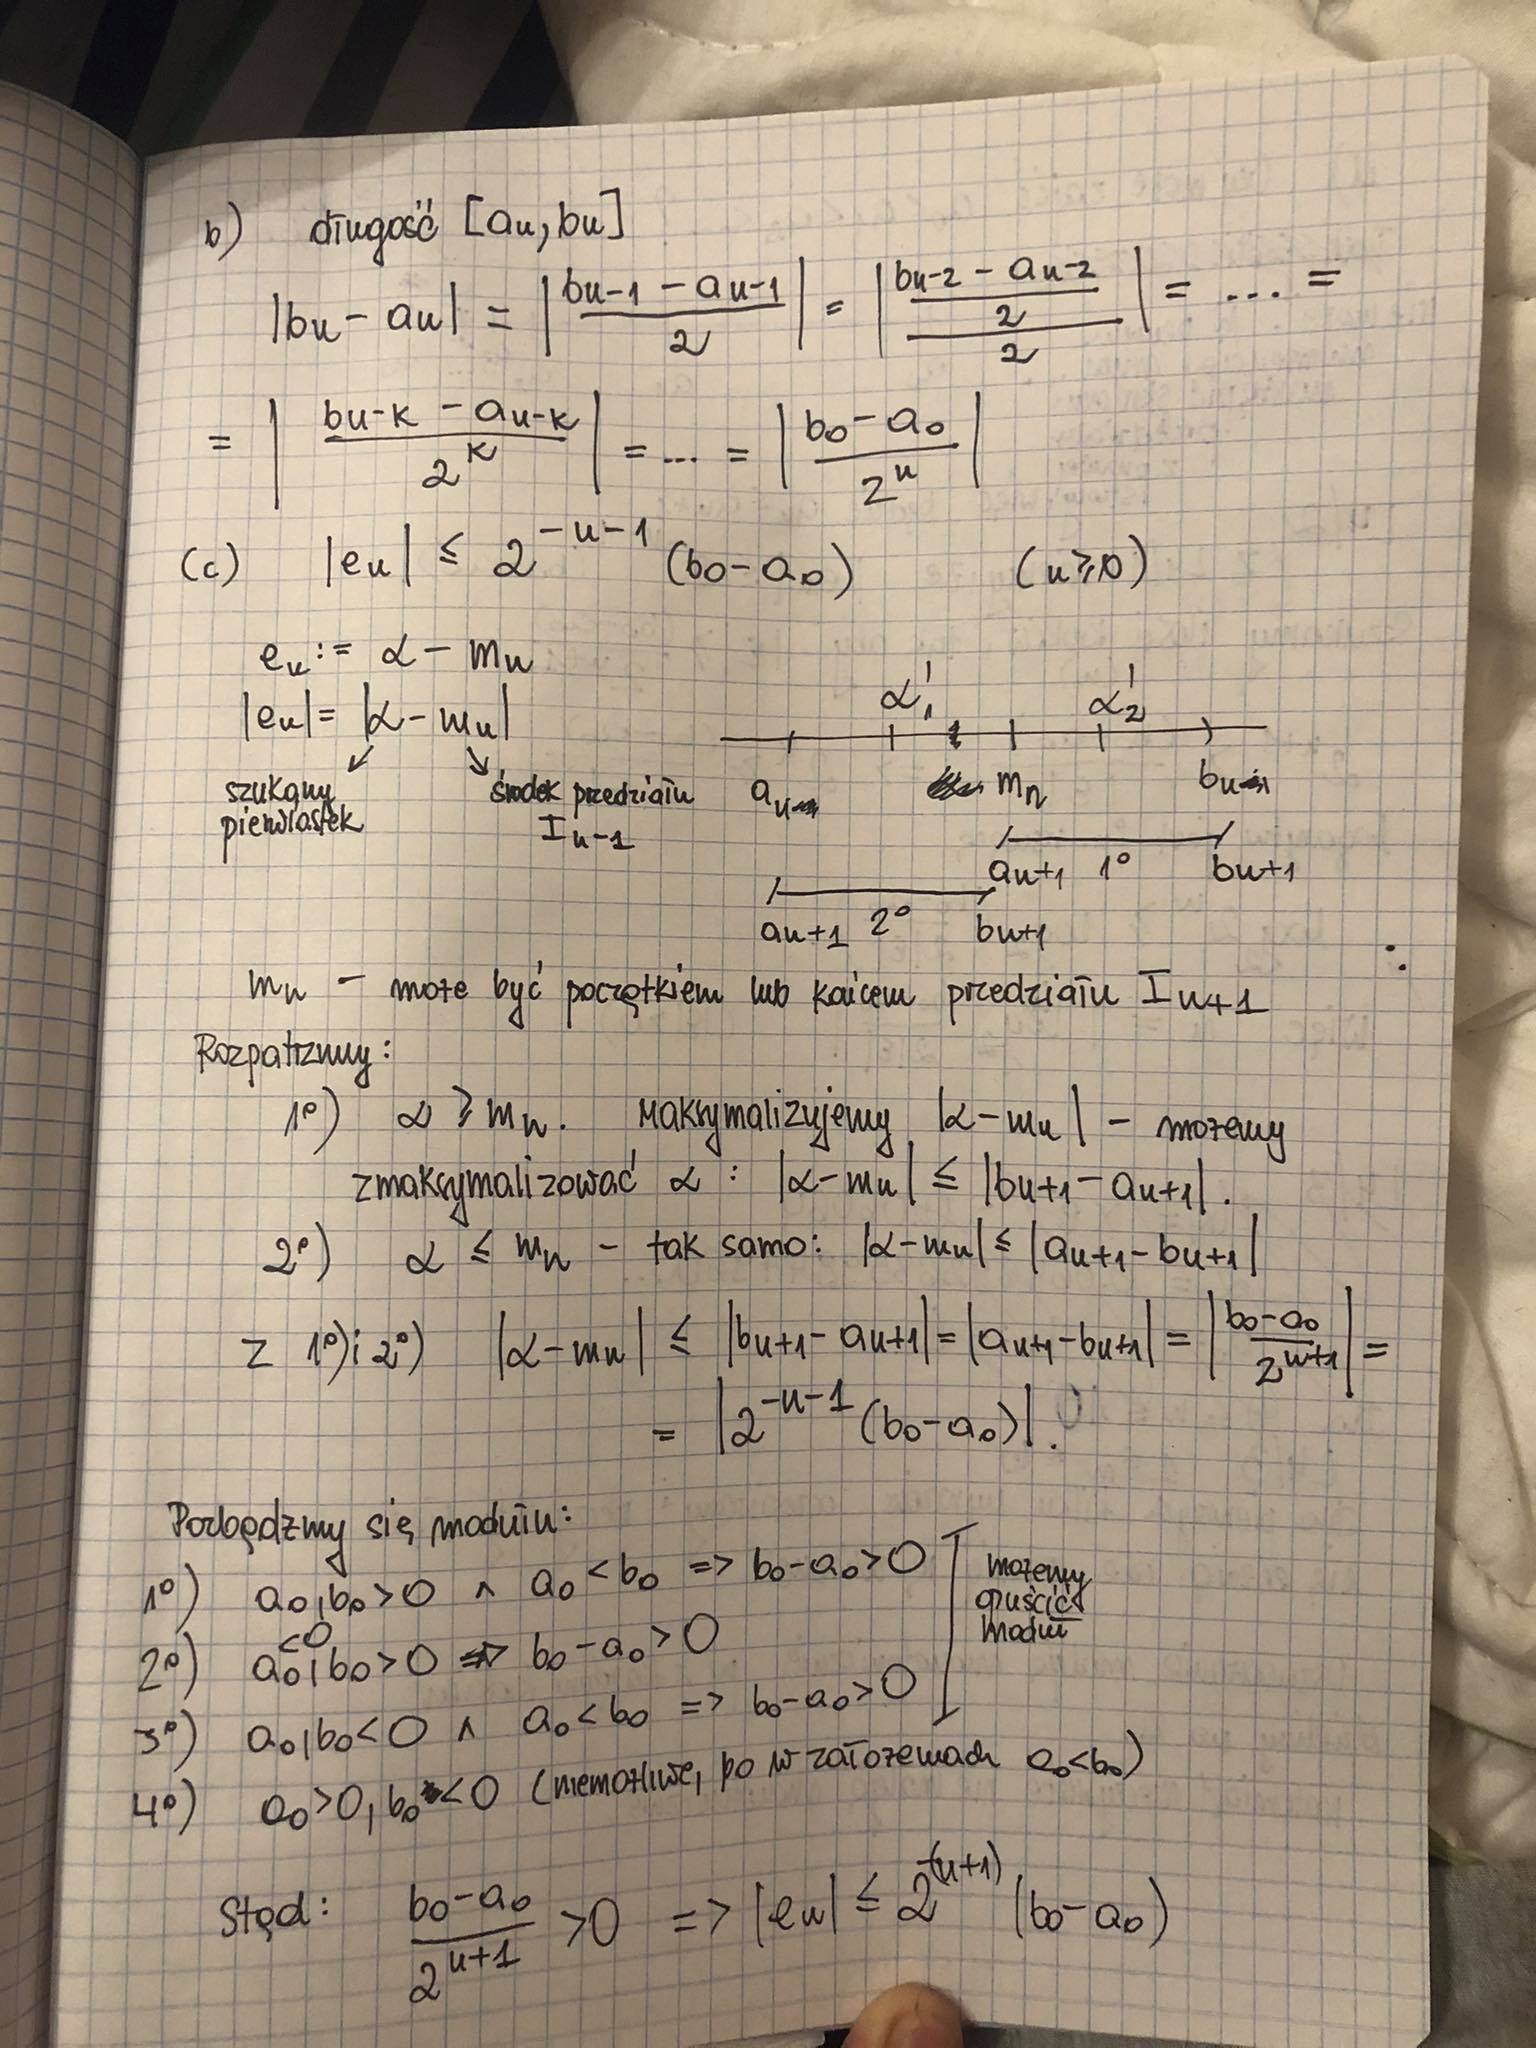 b) długość [an, bn]
|bn - an| = |(bn-1 - an-1)/2| = |((bn-2 - an-2)/2)/2| = ... =
= |(bn-k - an-k)/2^k| = ... = |(b0 - a0)/2^n|
(c) |en| ≤ 2^(-n-1) (b0 - a0) (n ≥ 0)
en := α - mn
|en| = |α - mn|
α'1 α'2
szukany pierwiastek
środek przedziału In-1
an mn bn
an+1 1° bn+1
an+1 2° bn+1
mn - może być początkiem lub końcem przedziału In+1
Rozpatrzmy:
1°) α ≥ mn. Maksymalizujemy |α - mn| - możemy
zmaksymalizować α : |α - mn| ≤ |bn+1 - an+1|.
2°) α ≤ mn - tak samo: |α - mn| ≤ |an+1 - bn+1|
Z 1°) i 2°) |α - mn| ≤ |bn+1 - an+1| = |an+1 - bn+1| = |(b0 - a0)/2^(n+1)| =
= |2^(-n-1) (b0 - a0)|.
Pozbądźmy się modułu:
1°) a0, b0 > 0 ∧ a0 < b0 => b0 - a0 > 0
2°) a0 <0, b0 > 0 => b0 - a0 > 0
3°) a0, b0 < 0 ∧ a0 < b0 => b0 - a0 > 0
możemy
opuścić
moduł
4°) a0 > 0, b0 < 0 (niemożliwe, bo w założeniach a0 < b0)
Stąd: (b0 - a0)/2^(n+1) > 0 => |en| ≤ 2^-(n+1) (b0 - a0)